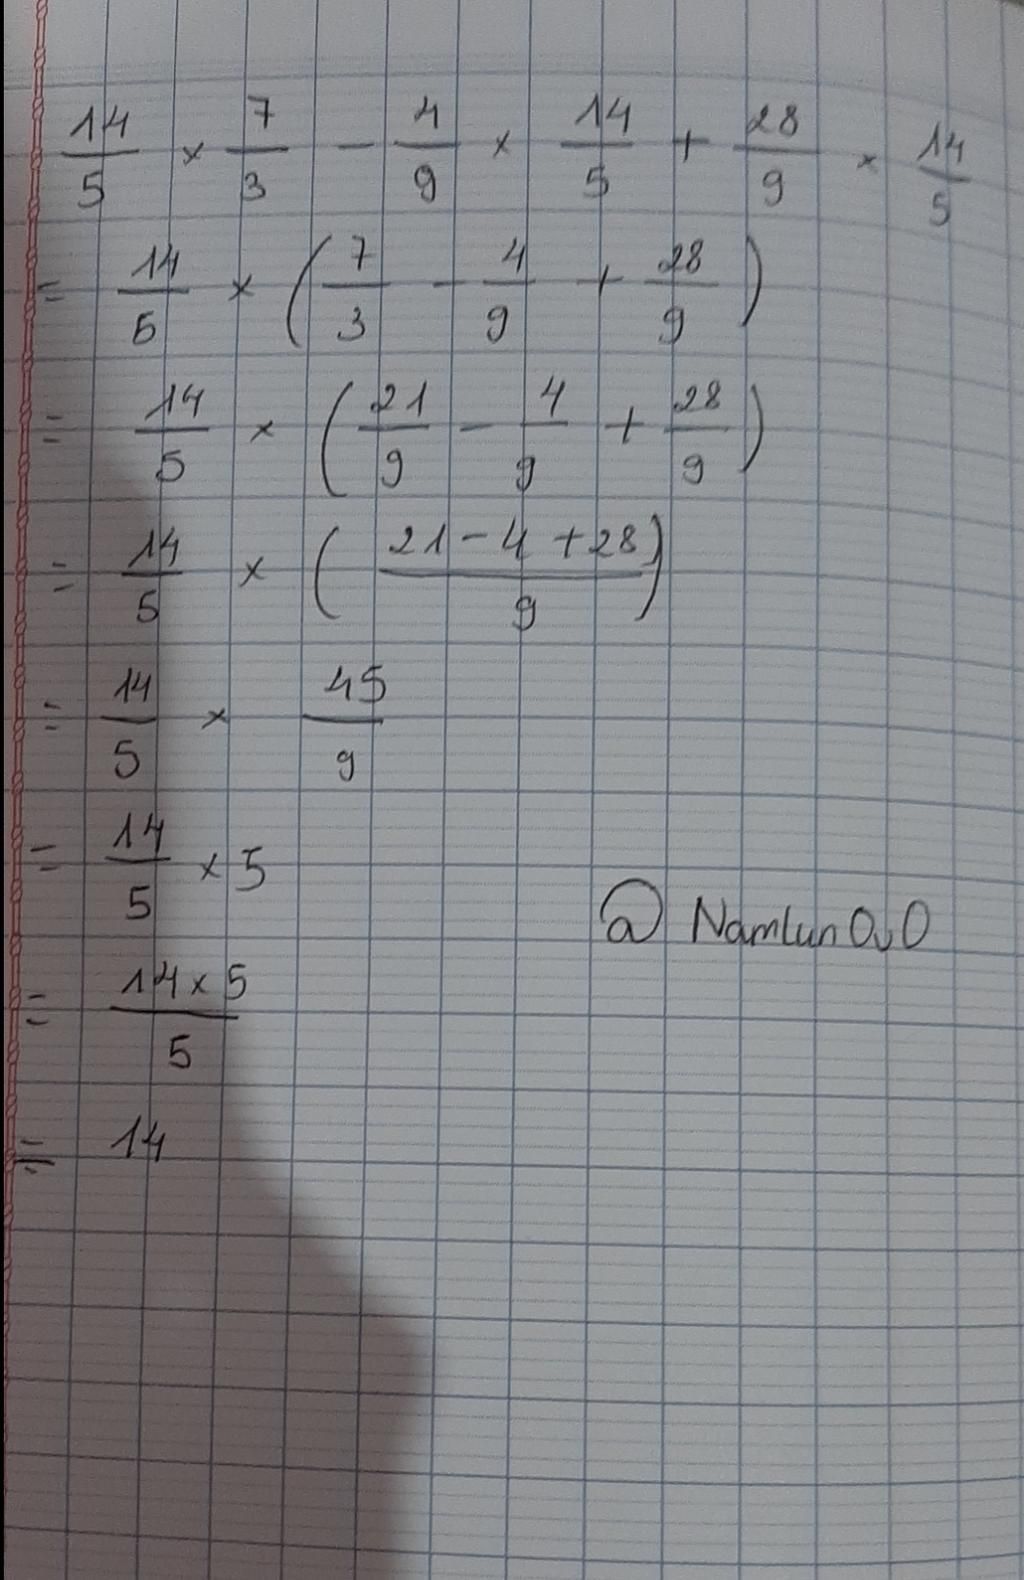 14/5 × 7/3 - 4/9 × 14/5 + 28/9 × 14/5
= 14/5 × (7/3 - 4/9 + 28/9)
= 14/5 × (21/9 - 4/9 + 28/9)
= 14/5 × ((21 - 4 + 28)/9)
= 14/5 × 45/9
= 14/5 × 5
@ NamlunOvO
= (14 × 5)/5
= 14